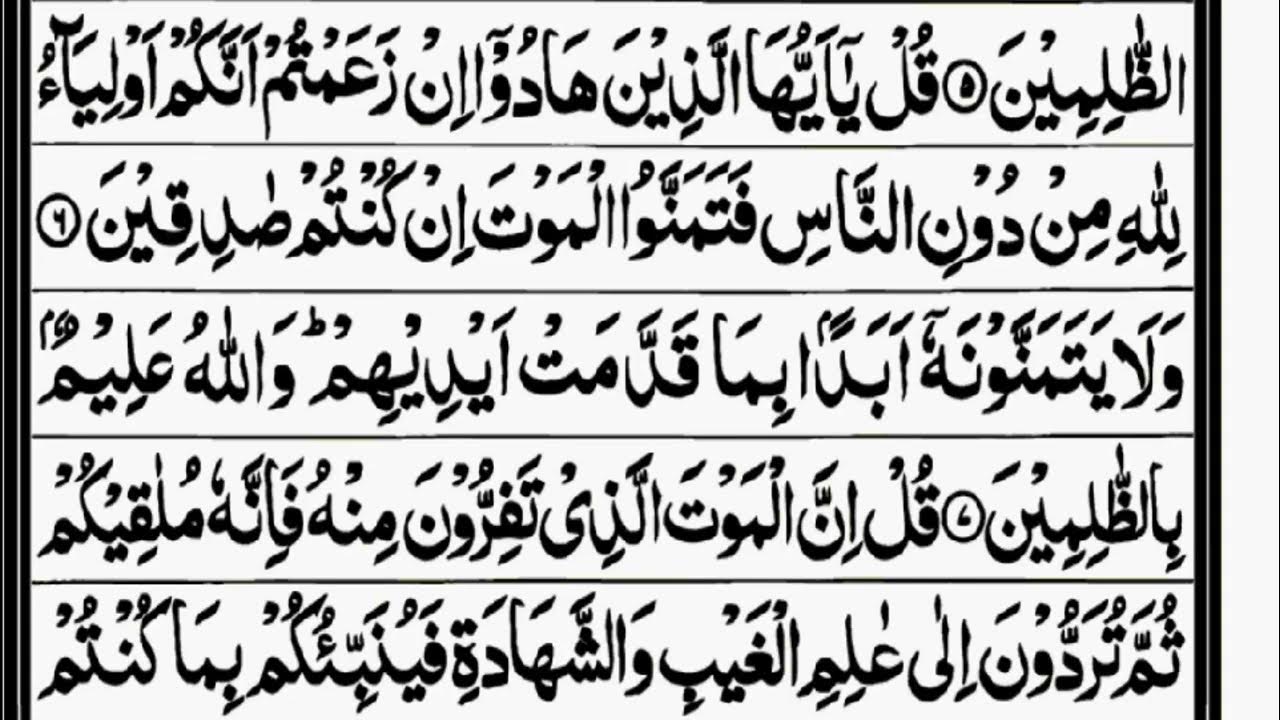 الظّٰلِمِيْنَ ۝۵ قُلْ يٰۤاَيُّهَا الَّذِيْنَ هَادُوْۤا اِنْ زَعَمْتُمْ اَنَّكُمْ اَوْلِيَآءُ
لِلّٰهِ مِنْ دُوْنِ النَّاسِ فَتَمَنَّوُا الْمَوْتَ اِنْ كُنْتُمْ صٰدِقِيْنَ ۝۶
وَلَا يَتَمَنَّوْنَهٗۤ اَبَدًۢا بِمَا قَدَّمَتْ اَيْدِيْهِمْ ؕ وَاللّٰهُ عَلِيْمٌۢ
بِالظّٰلِمِيْنَ ۝۷ قُلْ اِنَّ الْمَوْتَ الَّذِيْ تَفِرُّوْنَ مِنْهُ فَاِنَّهٗ مُلٰقِيْكُمْ
ثُمَّ تُرَدُّوْنَ اِلٰى عٰلِمِ الْغَيْبِ وَالشَّهَادَةِ فَيُنَبِّئُكُمْ بِمَا كُنْتُمْ